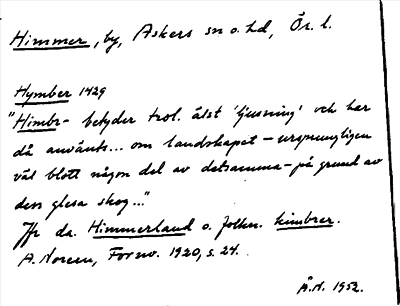 Himmer, by, Askers sn o. hd, Ör. l.
Hymber 1429
"Himbr- betyder trol. älst 'ljusning' och har
då använts... om landskapet - ursprungligen
väl blott någon del av detsamma - på grund av
dess glesa skog..."
Jfr da. Himmerland o. folkn. kimbrer.
A. Noreen, Fornv. 1920, s. 24.
Å.N. 1952.